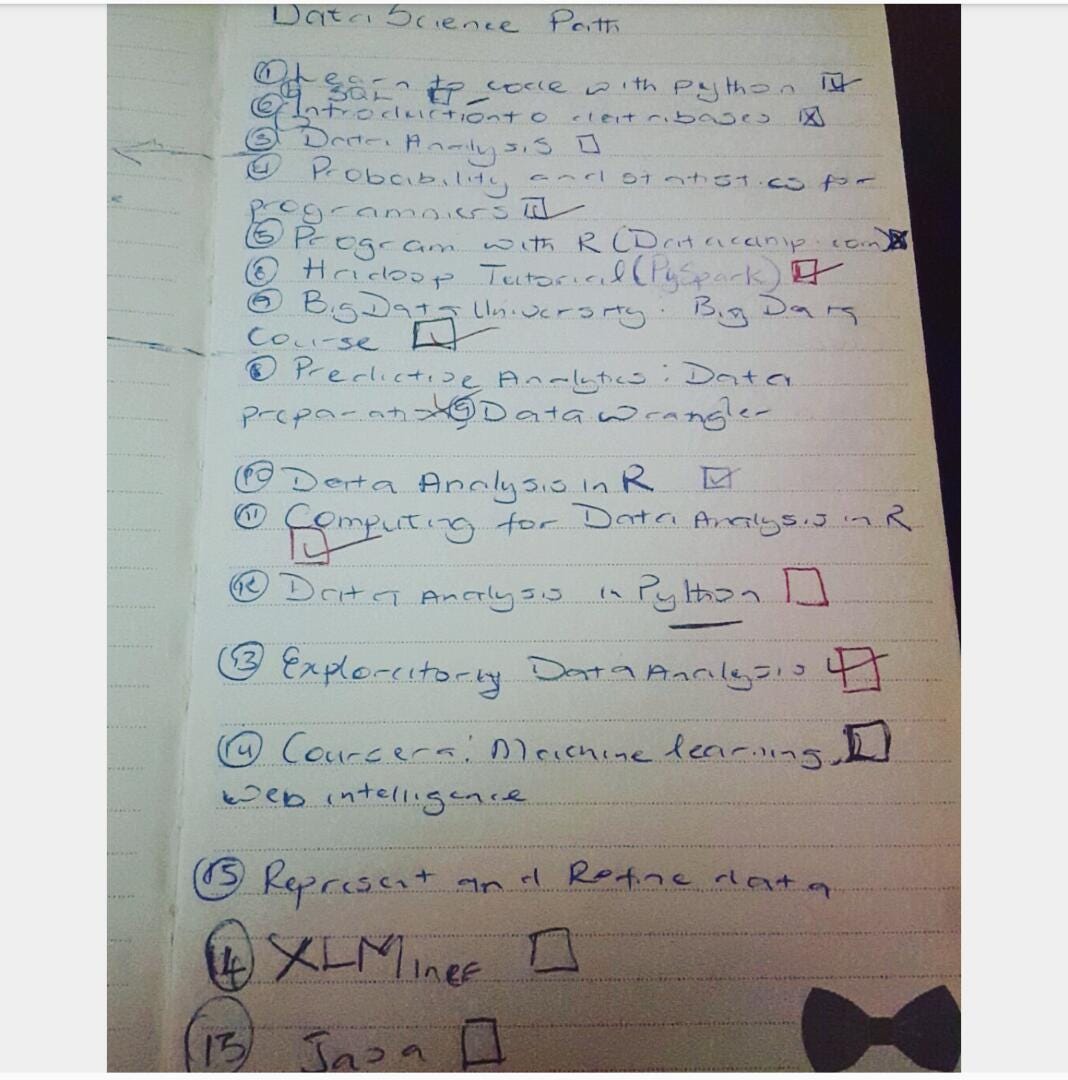 Data Science Path
① Learn to code with python
SQL
② Introduction to databases
③ Data Analysis
④ Probability and statistics for
programmers
⑤ Program with R (Datacamp.com)
⑥ Hadoop Tutorial (PySpark)
⑦ BigData University. Big Data
Course
⑧ Predictive Analytics: Data
preparation ⑨ Data wrangler
⑩ Data Analysis in R
⑪ Computing for Data Analysis in R
⑫ Data Analysis in Python
⑬ Exploratory Data Analysis
⑭ Coursera: Machine learning,
Web intelligence
⑮ Represent and Refine data
⑭ XLMiner
⑮ Java